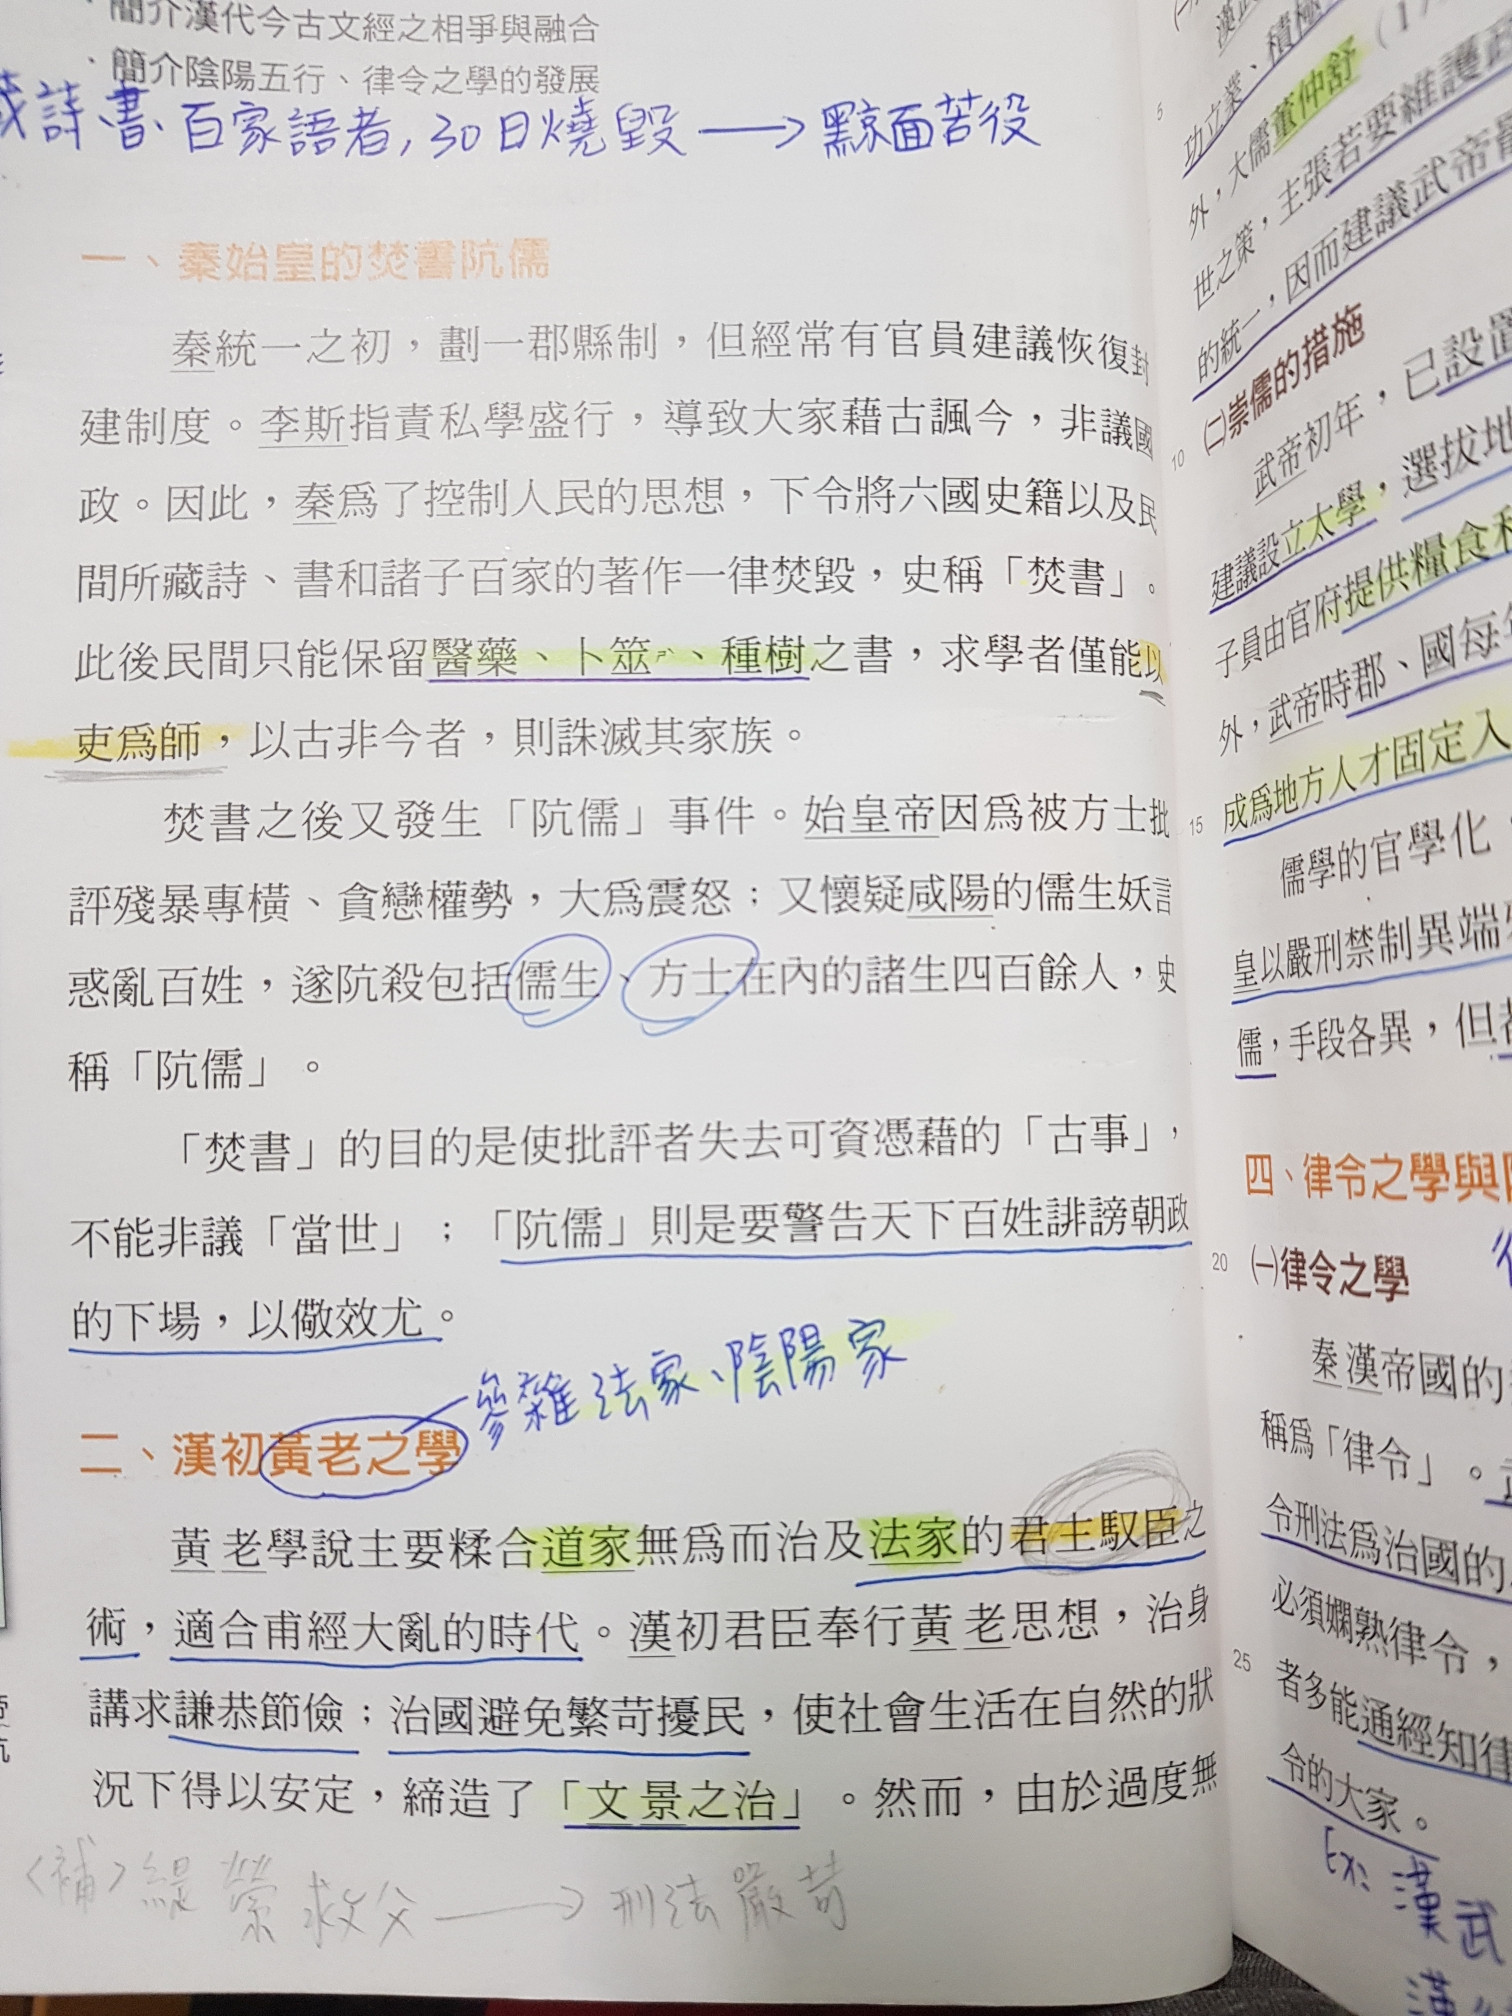 簡介漢代今古文經之相爭與融合
簡介陰陽五行、律令之學的發展
詩書、百家語者,30日燒毀→黥面苦役
一、秦始皇的焚書阬儒
秦統一之初，劃一郡縣制，但經常有官員建議恢復封
建制度。李斯指責私學盛行，導致大家藉古諷今，非議國
政。因此，秦為了控制人民的思想，下令將六國史籍以及民
間所藏詩、書和諸子百家的著作一律焚毀，史稱「焚書」。
此後民間只能保留醫藥、卜筮ㄕˋ、種樹之書，求學者僅能以
吏為師，以古非今者，則誅滅其家族。
焚書之後又發生「阬儒」事件。始皇帝因為被方士批
評殘暴專橫、貪戀權勢，大為震怒；又懷疑咸陽的儒生妖言
惑亂百姓，遂阬殺包括儒生、方士在內的諸生四百餘人，史
稱「阬儒」。
「焚書」的目的是使批評者失去可資憑藉的「古事」，
不能非議「當世」；「阬儒」則是要警告天下百姓誹謗朝政
的下場，以儆效尤。
參雜法家、陰陽家
二、漢初黃老之學
黃老學說主要糅合道家無為而治及法家的君主馭臣之
術，適合甫經大亂的時代。漢初君臣奉行黃老思想，治身
講求謙恭節儉；治國避免繁苛擾民，使社會生活在自然的狀
況下得以安定，締造了「文景之治」。然而，由於過度無
<補>緹縈救父→刑法嚴苛
5
功立業、積極
外，大儒董仲舒（17
世之策，主張若要維護政
的統一，因而建議武帝
㈡崇儒的措施
10
武帝初年，已設置
建議設立太學，選拔地
子員由官府提供糧食和
外，武帝時郡、國每年
成為地方人才固定入
15
儒學的官學化，
皇以嚴刑禁制異端
儒，手段各異，但
四、律令之學與
20
㈠律令之學
秦漢帝國的
稱為「律令」。
令刑法為治國的
必須嫻熟律令，
25
者多能通經知律
令的大家。
Ex:漢武
漢